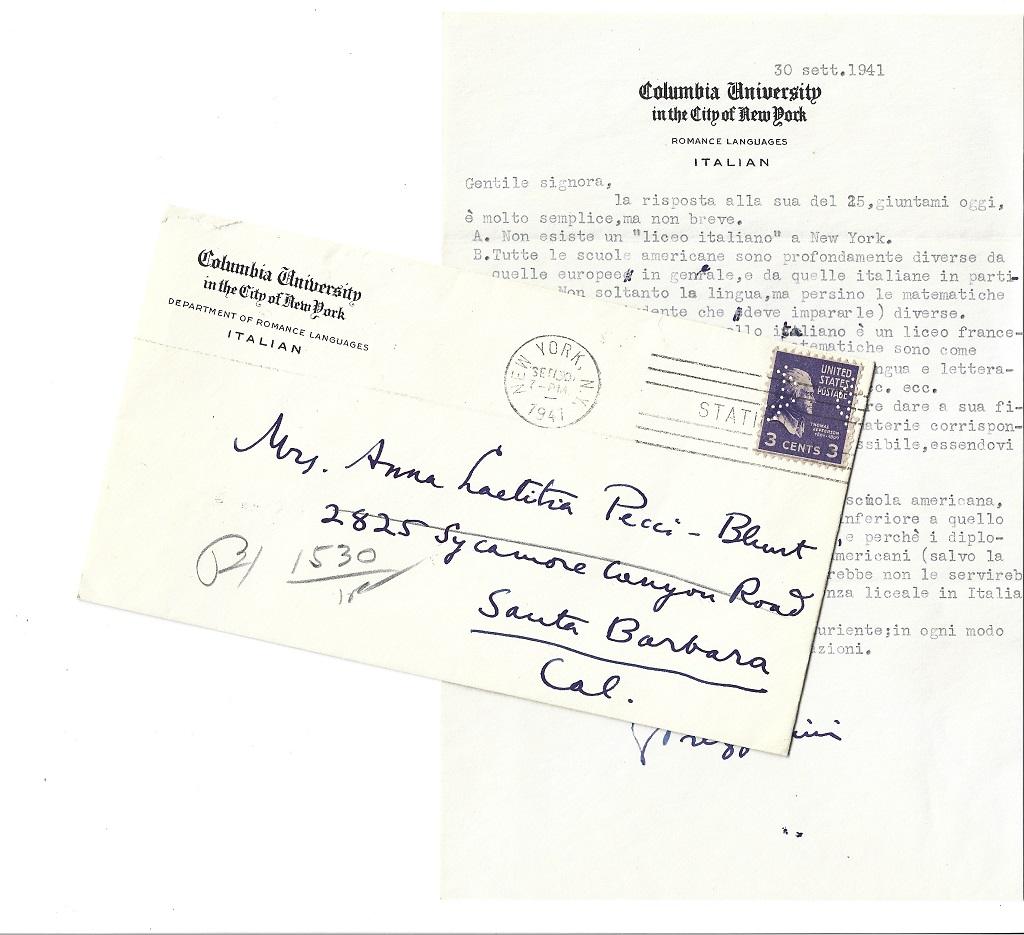 30 sett.1941
Columbia University
in the City of New York
ROMANCE LANGUAGES
ITALIAN
Gentile signora,
la risposta alla sua del 25,giuntami oggi,
è molto semplice,ma non breve.
A. Non esiste un "liceo italiano" a New York.
B.Tutte le scuole americane sono profondamente diverse da
quelle europee in generale,e da quelle italiane in parti-
Non soltanto la lingua,ma persino le matematiche
dente che deve impararle) diverse.
llo italiano è un liceo france-
tematiche sono come
ngua e lettera-
c. ecc.
re dare a sua fi-
aterie corrispon-
ssibile,essendovi
scuola americana,
inferiore a quello
,e perchè i diplo-
mericani (salvo la
rebbe non le servireb
nza liceale in Italia
uriente;in ogni modo
zioni.
Columbia University
in the City of New York
DEPARTMENT OF ROMANCE LANGUAGES
ITALIAN
NEW YORK, N.Y.
SEP 30
7-PM
1941
STATI
UNITED
STATES
POSTAGE
THOMAS
JEFFERSON
3 CENTS 3
Mrs. Anna Laetitia Pecci-Blunt
2825 Sycamore Canyon Road
Santa Barbara
Cal.
1530